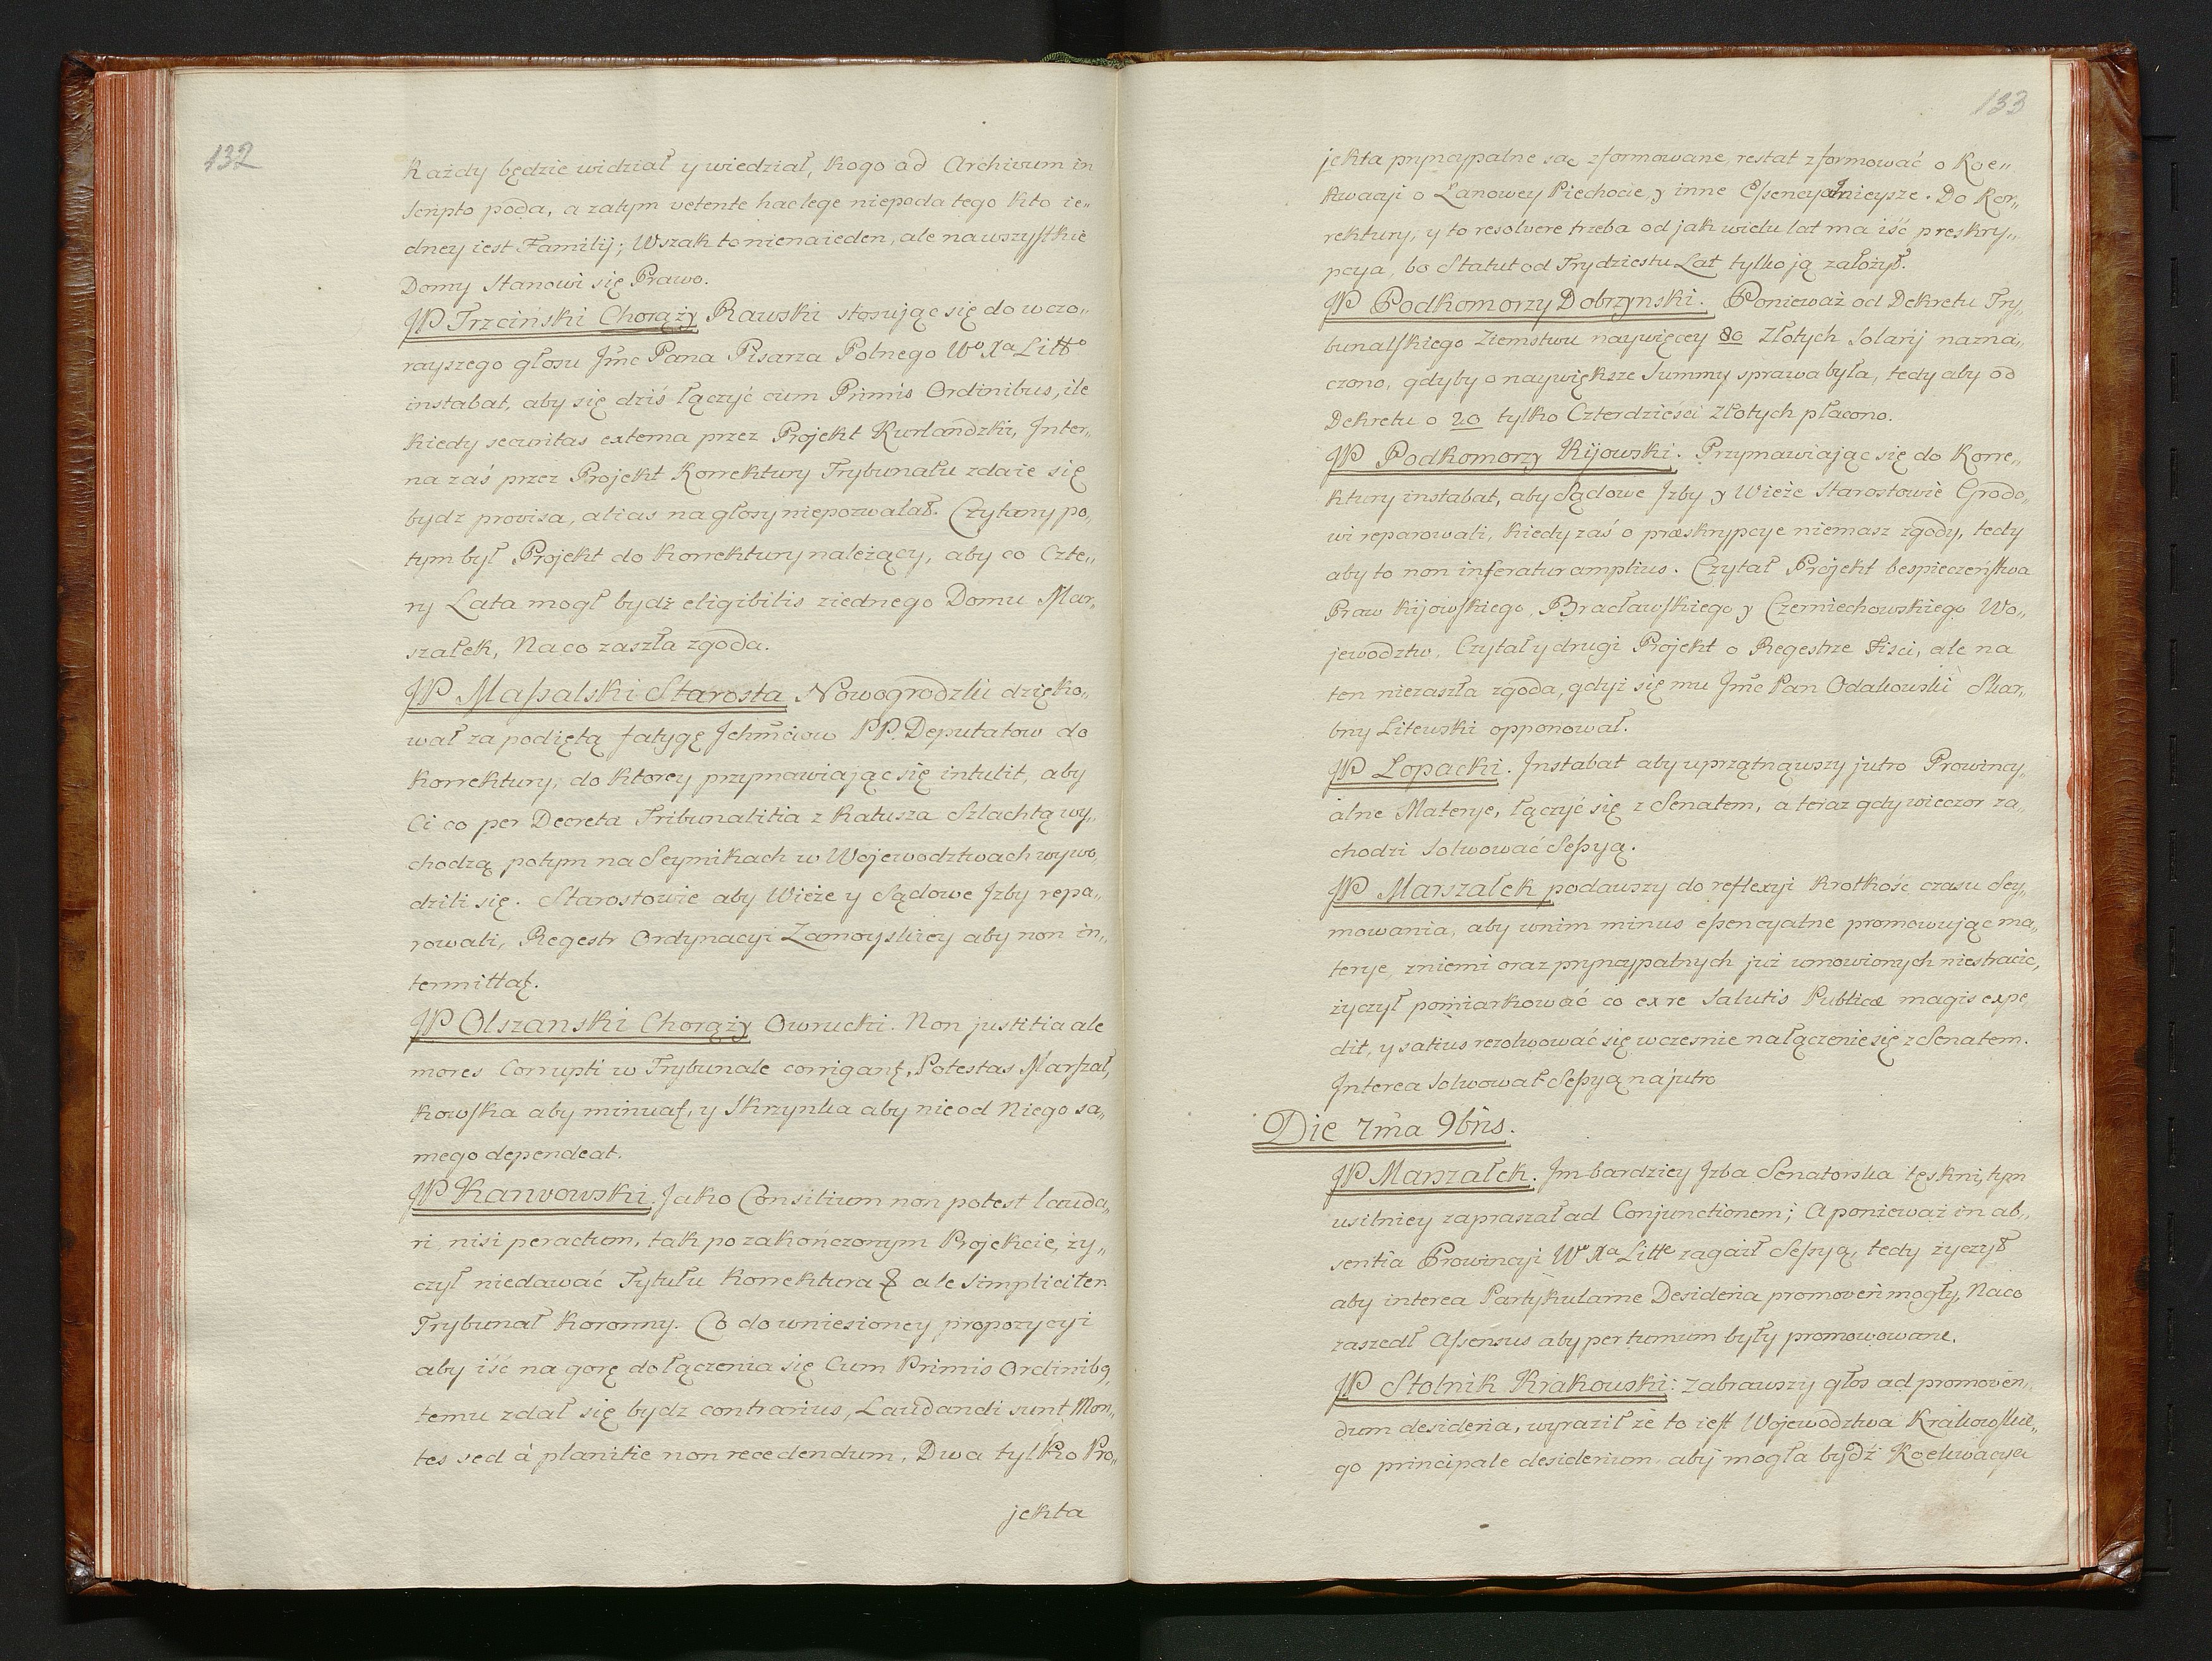 132
Każdy będzie widział y wiedział, kogo ad Archivum in
Scripto poda, a zatym vetente hac lege niepoda tego kto ie„
dney iest Familij; Wszak to nienaieden, ale na wszystkie
Domy Stanowi się Prawo.
JP Trzciński Chorąży Rawski stosując się do wczo„
rayszego głosu Jmc Pana Pisarza Polnego Wo Xa Litto
instabat, aby się dziś łączyć cum Primis Ordinibus, ile
kiedy securitas externa przez Projekt Kurlandzki, Inter„
na zaś przez Projekt Korrektury Trybunału zdaie się
bydz provisa, alias na głosy niepozwalał. Czytany po„
tym był Projekt do Korrektury należący, aby co Czte„
ry Lata mogł bydź eligibilis ziednego Domu Mar„
szałek, Na co zaszła zgoda.
JP Massalski Starosta Nowogrodzki dzięko„
wał za podiętą fatygę Jchmciow PP. Deputatow do
Korrektury, do ktorey przymawiając się intulit, aby
Ci co per Decreta Tribunalitia z Ratusza Szlachtą wy„
chodzą potym na Seymikach w Wojewodztwach wywo„
dzili się. Starostowie aby Wieże y Sądowe Izby repa„
rowali, Regestr Ordynacyi Zamoyskiey aby non in„
termittat.
JP Olszanski Chorąży Owrucki. Non justitia ale
mores Corrupti w Trybunale corrigant, Potestas Marszał„
kowska aby minuat, y Skrzynka aby nie od Niego sa„
mego dependeat.
JP Karwowski. Jako Consilium non potest lauda„
ri, nisi peractum, tak po zakończonym Projekcie, ży„
czył niedawać Tytułu Korrektura & ale Simpliciter
Trybunał Koronny. Co do wniesioney propozycyi
aby iść na gorę do łączenia się Cum Primis Ordinibq
temu zdał się bydz contrarius, Laudandi sunt Mon„
tes sed à planitie non recedendum, Dwa tylko Pro„
jekta
133
jekta pryncypalne są zformowane, restat zformować o Koe„
kwacyi o Łanowey Piechocie, y inne Essencyalnieysze. Do Kor„
rektury, y to resolvere trzeba od jak wielu lat ma iść preskry„
pcya, bo Statut od Trydziestu Lat tylko ją założył.
JP Podkomorzy Dobrzynski. Ponieważ od Dekretu Try„
bunalskiego Ziemstwu naywięcey 80 Złotych Solarij nazna„
czono, gdyby o naywiększe Summy sprawa była, tedy aby od
Dekretu o 20 tylko Czterdzieści Złotych płacono.
JP Podkomorzy Kijowski. Przymawiając się do Korre„
ktury instabat, aby Sądowe Izby y Wieże Starostowie Grodo„
wi reparowali, kiedy zaś o præskrypcye niemasz zgody, tedy
aby to non inseratur amplius. Czytał Projekt bespieczeństwa
Praw Kijowskiego, Bracławskiego y Czerniechowskiego Wo„
jewodztw, Czytał y drugi Projekt o Regestrze Fisci, ale na
ten niezaszła zgoda, gdyż się mu Jmc Pan Odakowski Skar„
bny Litewski opponował.
JP Lopacki. Instabat aby uprzątnąwszy jutro Prowincy„
alne Materye, łączyć się z Senatem, a teraz gdy wieczor za„
chodzi Solwować Sessyą.
JP Marszałek podawszy do reflexyi krotkość czasu Sey„
mowania, aby wnim minus essencyalne promowując ma„
terye, zniemi oraz pryncypalnych już umowionych niestracic,
życzył pomiarkować co ex re Salutis Publicæ magis expe„
dit, y satius rezolwować się wczesnie na łączenie się z Senatem.
Interea Solwował Sessyą na jutro
Die 7ma 9bris.
JP Marszałek. Im bardziey Izba Senatorska tęskni, tym
usilniey zapraszał ad Conjunctionem; A ponieważ in ab„
sentia Prowincyi Wo Xa Litte zagaił Sessyą, tedy życzył
aby interea Partykularne Desideria promoveri mogły, Na co
zaszedł Assensus aby per turnum były promowowane.
JP Stolnik Krakowski: Zabrawszy głos ad promoven„
dum desideria, wyraził że to iest Wojewodztwa Krakowskie„
go principale desiderium, aby mogła bydź Koekwacya